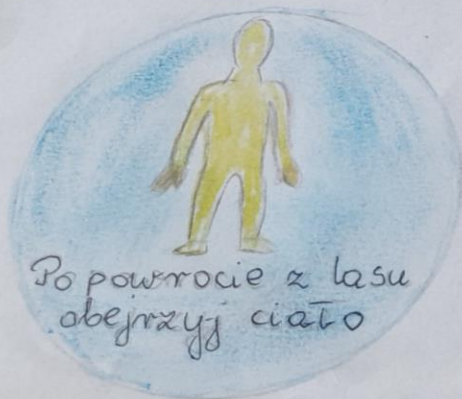 Po powrocie z lasu
obejrzyj ciało